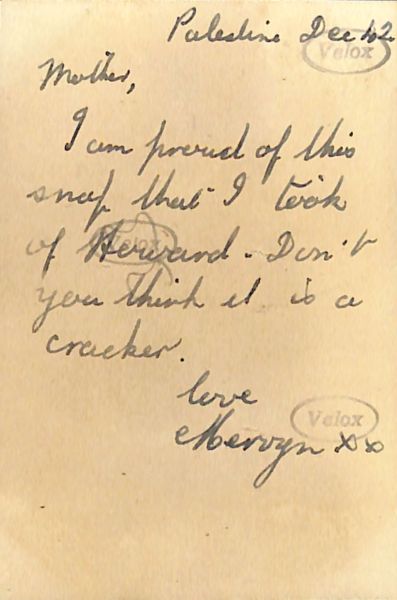 Palestine Dec 42
Velox
Mother,
I am proud of this
snap that I took
of Howard. Don't
Velox
you think it is a
cracker.
love
Velox
Mervyn xxx